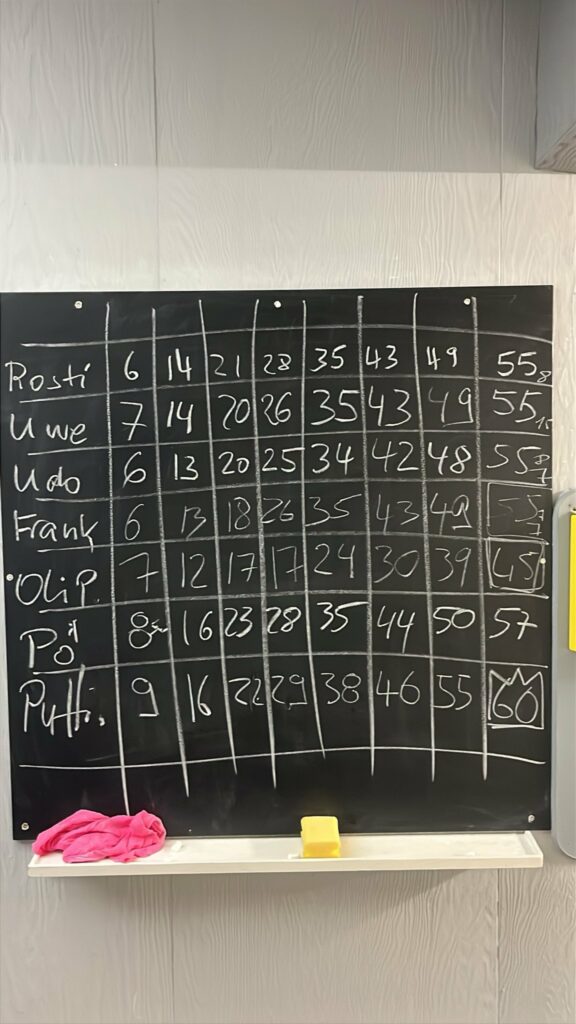 Rosti 6 14 21 28 35 43 49 55 8
Uwe 7 14 20 26 35 43 49 55 15
Udo 6 13 20 25 34 42 48 55 8 7
Frank 6 13 18 26 35 43 49 55 7 7
Oli P. 7 12 17 17 24 30 39 45
Pö 8 16 23 28 35 44 50 57
Putti. 9 16 22 29 38 46 55 60